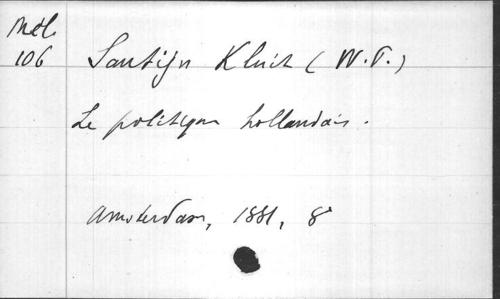 Mél.
106
Sautijn Kluit (W.P.)
Le politique hollandais.
Amsterdam, 1881, 8°